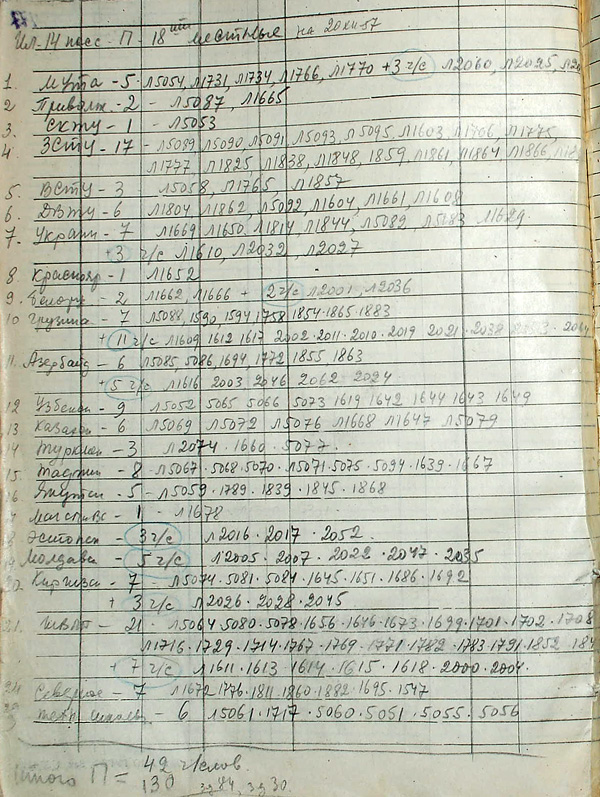 Ил-14 пасс. П - 18ти местные на 20XII-57
1. МУТА - 5 - Л5054, Л1731, Л1734, Л1766, Л1770 + 3 ч/с Л2060, Л2025,
2 Приволж. - 2 - Л5087, Л1665
3. СКТУ - 1 - Л5053
4 ЗСТУ - 17 - Л5089 Л5090, Л5091, Л5093, Л5095, Л1603, Л1706, Л1775,
Л1777, Л1825, Л1838, Л1848, 1859, Л1861, Л1864 Л1866,
5. ВСТУ - 3 - Л5058, Л1765, Л1857
6. ДВТУ - 6 Л1804 Л1862, Л5092, Л1604, Л1661, Л1608
7. Украин - 7 Л1669 Л1650, Л1814 Л1844, Л5082, Л1684
+3 ч/с Л1610, Л2032, Л2027
8 Краснояр - 1 Л1652
9. Белорр - 2 Л1662, Л1666 + 2 ч/с Л2001, Л2036
10 Грузина - 7 Л5088, 1590, 1594 1758 1854 · 1865 · 1883
+ 11 ч/с Л1609 1612 1617 2002 · 2011 · 2010 · 2019 2021 · 2038
11. Азербайд - 6 Л5085, 5086, 1694, 1772 1855 1863
+ 5 ч/с Л1616 2003 2046 2062 2024
12 Узбекск - 9 Л5052 5065 5066 5073 1619 1642 1644 1643 1649
13 Казахск - 6 Л5069 Л5072 Л5076 Л1668 Л1647 Л5079
14 Туркмен - 3 Л2074 · 1660 · 5077
15. Таджик - 8 - Л5067 · 5068 · 5070 · Л5071 · 5075 · 5094 · 1639 · 1667
16 Якутск - 5 - Л5059 · 1789 · 1839 · 1845 · 1868
- 1 - Л1678
18 Эстонск - 3 ч/с Л2016 · 2017 · 2052.
19 Молдавс - 5 ч/с Л2005 · 2007 · 2022 · 2047 · 2035
20. Киргиза - 7 - Л5074 · 5081 · 5084 · 1645 · 1651 · 1686 · 1692
+ 3 ч/с Л2026 · 2028 · 2045
21. - 21 · Л5064 5080 · 5078 · 1656 · 1646 · 1673 · 1699 · 1701 · 1702 · 1708
Л1716 · 1729 · 1714 · 1767 · 1769 · 1771 · 1782 · 1783 · 1791 · 1852
+ 7 ч/с Л1611 · 1613 · 1614 · 1615 · 1618 · 2000 · 2004
Северное - 7 Л1672 1776 · 1811 · 1860 · 1882 · 1695 · 1547
школы - 6 Л5061 · 1717 · 5060 · 5051 · 5055 · 5056
Итого П = 42 ч/слов.
130